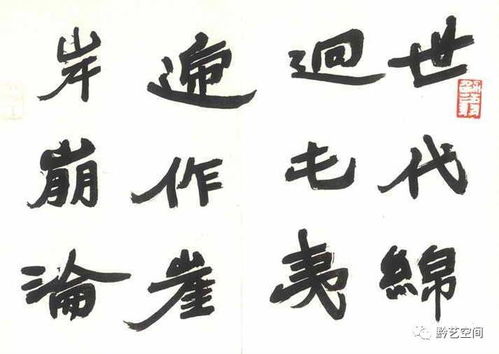 世代綿
迴屯夷
逓作崖
岸崩淪
黔艺空间